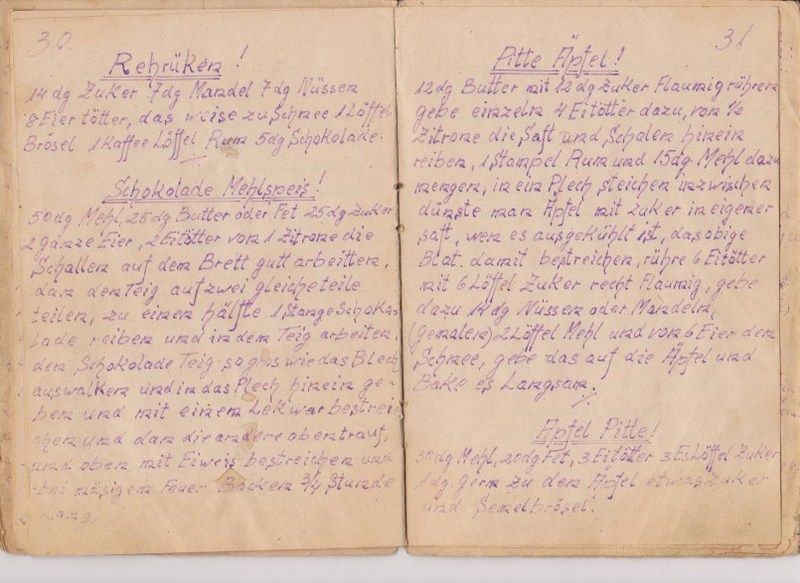 30
Rehrüken!
14 dg Zuker 7dg Mandel 7dg Nüssen
8 Eier tötter, das weise zu Schnee 1 Löffel
Brösel 1 Kaffee Löffel Rum 5dg Schokolade.
Schokolade Mehlspeis!
50 dg Mehl, 25dg Butter oder Fet 25dg Zuker
2 ganze Eier, 2 Eitötter von 1 Zitrone die
Schallen auf dem Brett gutt arbeitten,
dan den Teig auf zwei gleiche teile
teilen, zu einen hälfte 1 Stange Schoko-
lade reiben und in dem Teig arbeiten,
den Schokolade Teig so gros wie das Blech
auswalken und in das Plech hinein ge-
ben und mit einem Lekwar bestrei-
chen und dan die andere oben trauf,
und oben mit Eiweis bestreichen und
bei mäsigem Feuer Backen 3/4 Stunde
Lang.
31
Pitte Äpfel!
12 dg Butter mit 12 dg Zuker Flaumig rühren
gebe einzeln 4 Eitötter dazu, von 1/2
Zitrone die Saft und Schalen hinein
reiben, 1 Stampel Rum und 15 dg. Mehl dazu
mengen, in ein Plech steichen inzwischen
dünste man Äpfel mit Zuker in eigener
saft, wen es ausgekühlt ist, das obige
Blat damit bestreichen, rühre 6 Eitötter
mit 6 Löffel Zuker recht Flaumig, gebe
dazu 14 dg Nüssen oder Mandeln,
(gemalen) 2 Löffel Mehl und von 6 Eier den
Schnee, gebe das auf die Äpfel und
Bake es Langsam.
Äpfel Pitte!
30 dg Mehl, 20 dg Fet, 3 Eitötter 3 Es Löffel Zuker
1 dg. germ zu den Äpfel etwas Zuker
und Semelbrösel.